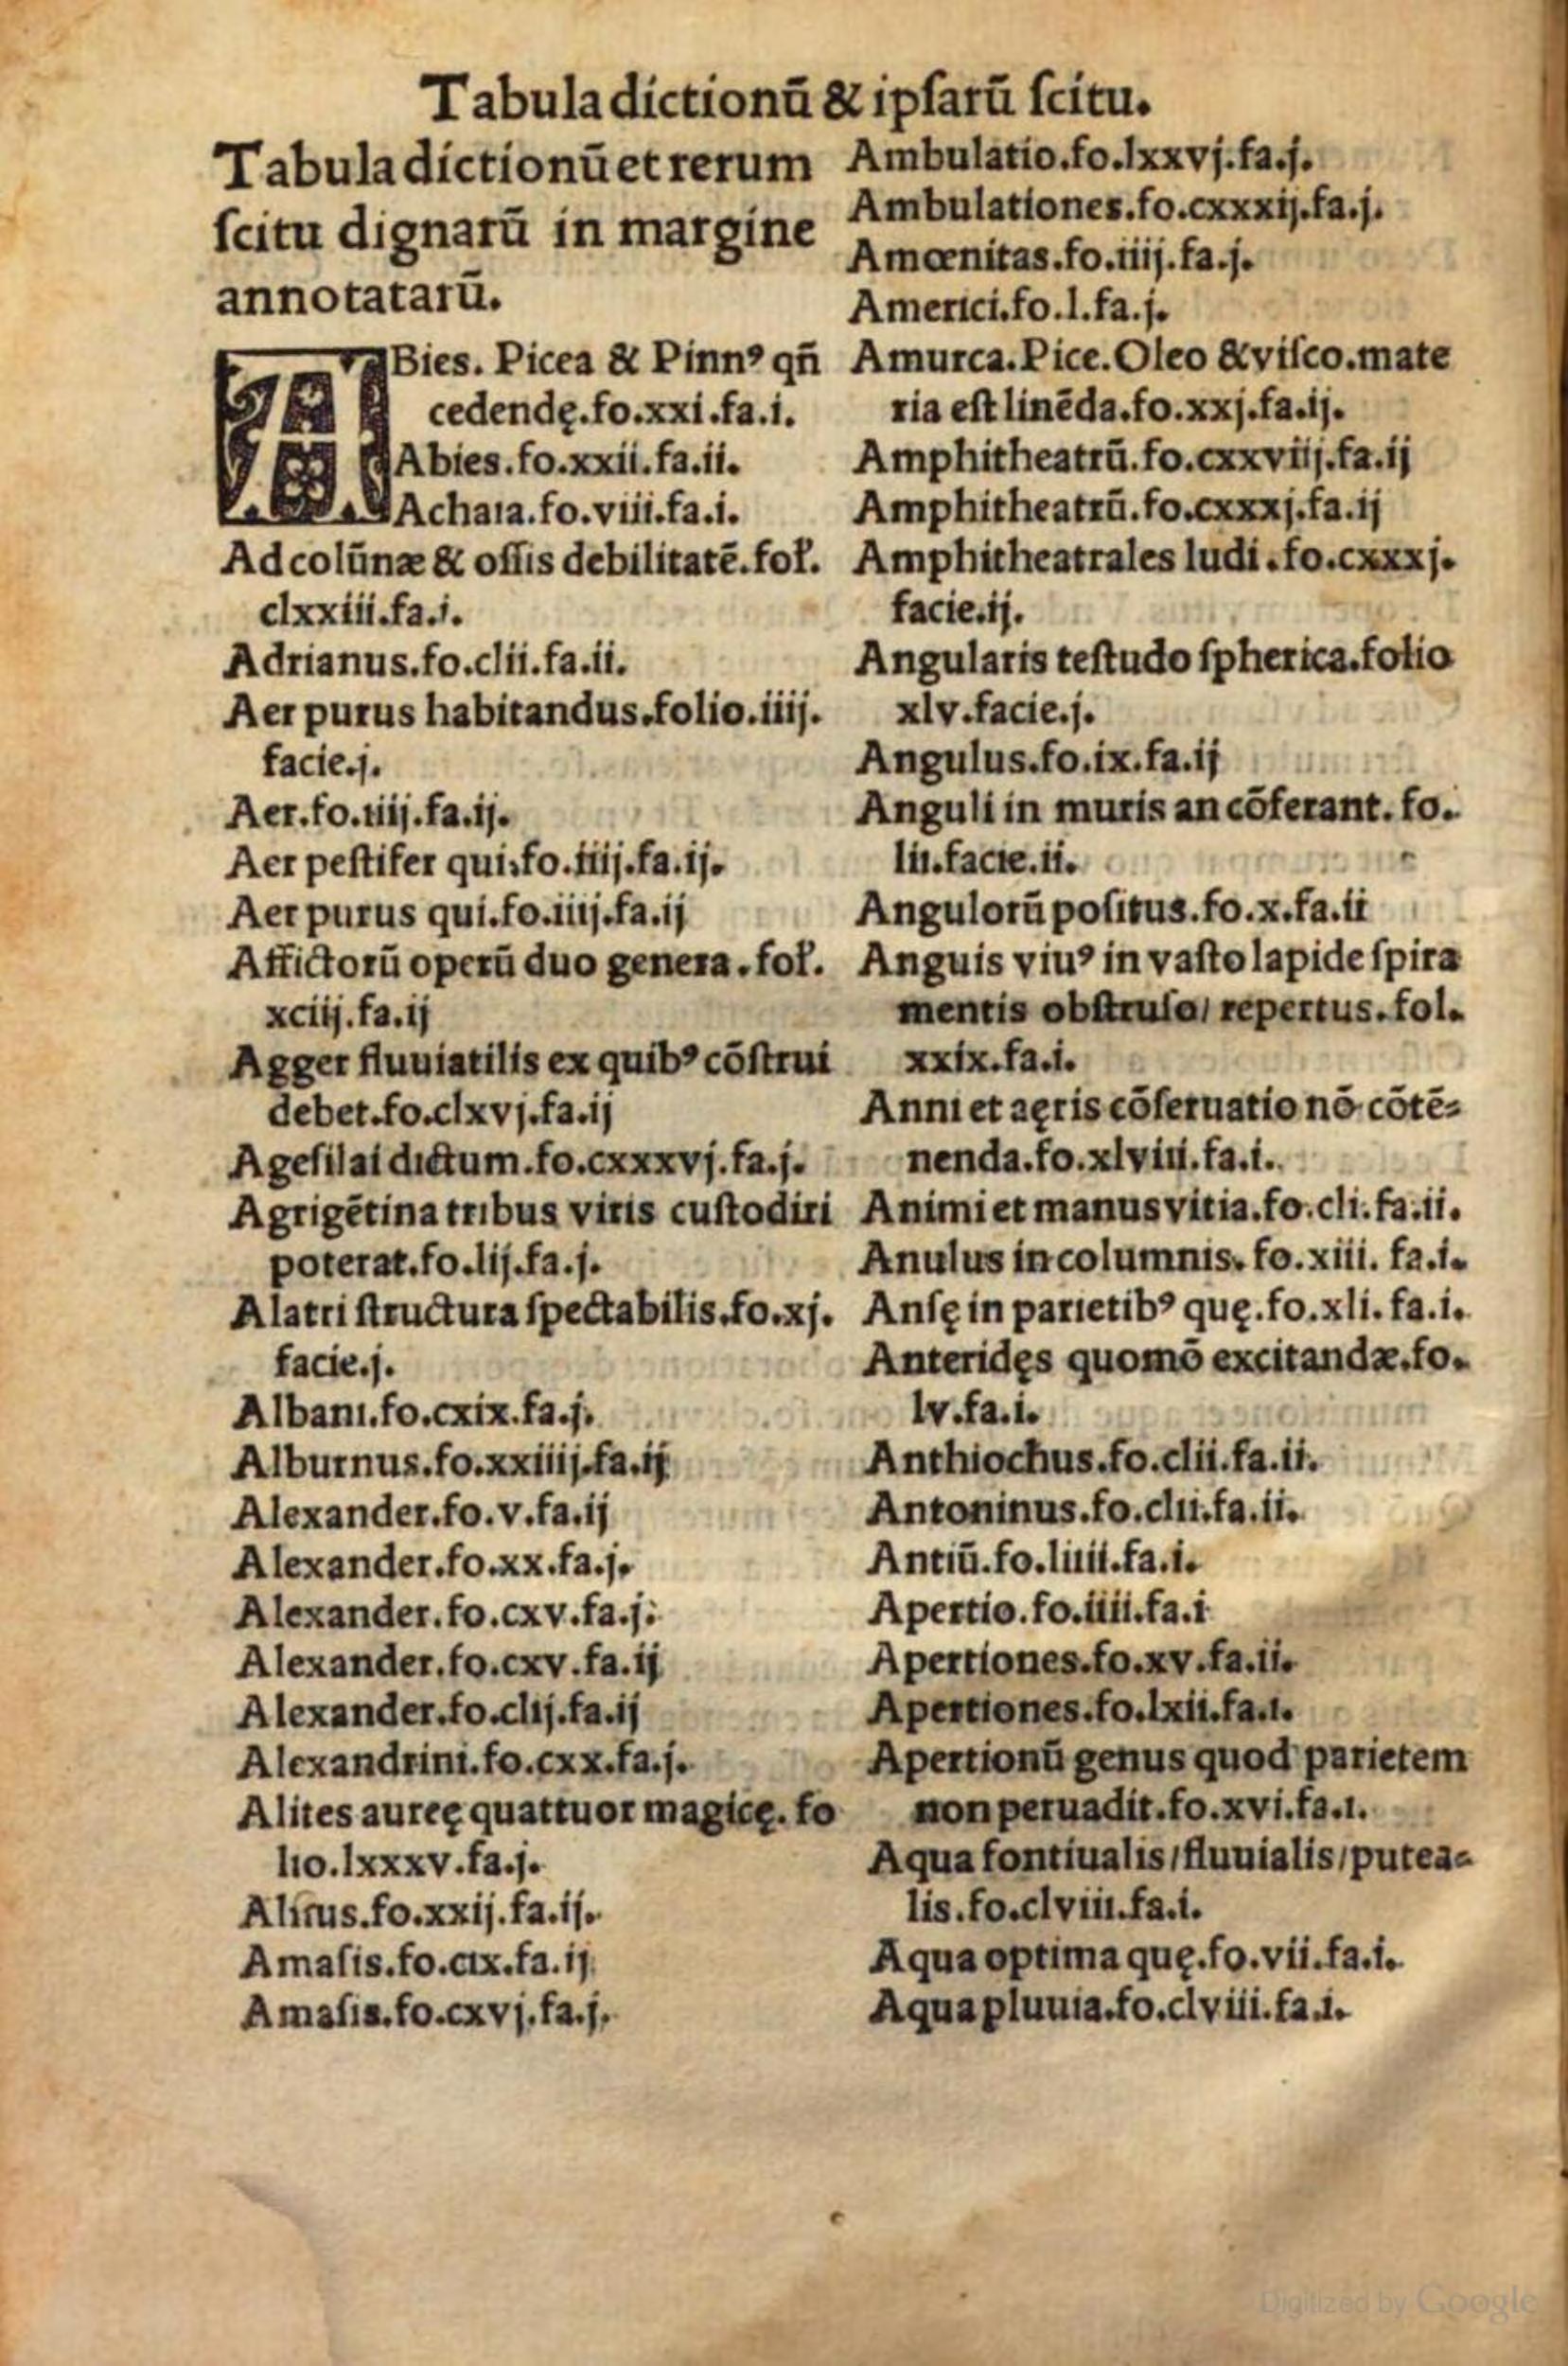 Tabula dictionū & ipsarū scitu.
Tabula dictionū et rerum
scitu dignarū in margine
annotatarū.
ABies. Picea & Pinnꝰ qñ
cedendę.fo.xxi.fa.i.
Abies.fo.xxii.fa.ii.
Achaia.fo.viii.fa.i.
Ad colūnæ & ossis debilitatē.fol̃.
clxxiii.fa.i.
Adrianus.fo.clii.fa.ii.
Aer purus habitandus.folio.iiij.
facie.j.
Aer.fo.iiij.fa.ij.
Aer pestifer qui.fo.iiij.fa.ij.
Aer purus qui.fo.iiij.fa.ij
Affictorū operū duo genera.fol̃.
xciij.fa.ij
Agger fluuiatilis ex quibꝰ cōstrui
debet.fo.clxvj.fa.ij
Agesilai dictum.fo.cxxxvj.fa.j.
Agrigētina tribus viris custodiri
poterat.fo.lij.fa.j.
Alatri structura spectabilis.fo.xj.
facie.j.
Albani.fo.cxix.fa.j.
Alburnus.fo.xxiiij.fa.ij
Alexander.fo.v.fa.ij
Alexander.fo.xx.fa.j.
Alexander.fo.cxv.fa.j.
Alexander.fo.cxv.fa.ij
Alexander.fo.clij.fa.ij
Alexandrini.fo.cxx.fa.j.
Alites aureę quattuor magicę. fo
lio.lxxxv.fa.j.
Alitus.fo.xxij.fa.ij.
Amasis.fo.cix.fa.ij
Amasis.fo.cxvj.fa.j.
Ambulatio.fo.lxxvj.fa.j.
Ambulationes.fo.cxxxij.fa.j.
Amœnitas.fo.iiij.fa.j.
Americi.fo.l.fa.j.
Amurca.Pice.Oleo & visco.mate
ria est linēda.fo.xxj.fa.ij.
Amphitheatrū.fo.cxxviij.fa.ij
Amphitheatrū.fo.cxxxj.fa.ij
Amphitheatrales ludi.fo.cxxxj.
facie.ij.
Angularis testudo spherica.folio
xlv.facie.j.
Angulus.fo.ix.fa.ij
Anguli in muris an cōferant. fo.
lii.facie.ii.
Angulorū positus.fo.x.fa.ii
Anguis viuꝰ in vasto lapide spira
mentis obstruso/ repertus.fol.
xxix.fa.i.
Anni et aęris cōseruatio nō cōtē-
nenda.fo.xlviii.fa.i.
Animi et manus vitia.fo.cli.fa.ii.
Anulus in columnis. fo.xiii. fa.i.
Ansę in parietibꝰ quę.fo.xli. fa.i.
Anteridęs quomō excitandæ.fo.
lv.fa.i.
Anthiochus.fo.clii.fa.ii.
Antoninus.fo.clii.fa.ii.
Antiū.fo.liiii.fa.i.
Apertio.fo.iiii.fa.i
Apertiones.fo.xv.fa.ii.
Apertiones.fo.lxii.fa.i.
Apertionū genus quod parietem
non peruadit.fo.xvi.fa.i.
Aqua fontiualis/fluuialis/putea-
lis.fo.clviii.fa.i.
Aqua optima quę.fo.vii.fa.i.
Aqua pluuia.fo.clviii.fa.i.
Digitized by Google